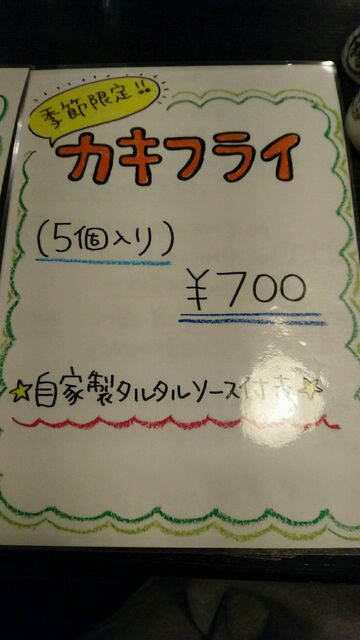 季節限定!!
カキフライ
(5個入り)
¥700
☆自家製タルタルソース付き☆